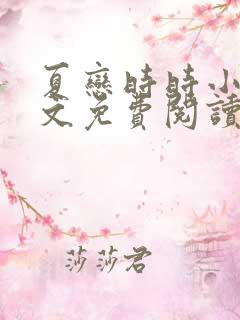 夏戀時時小
文免費閱讀
莎莎君